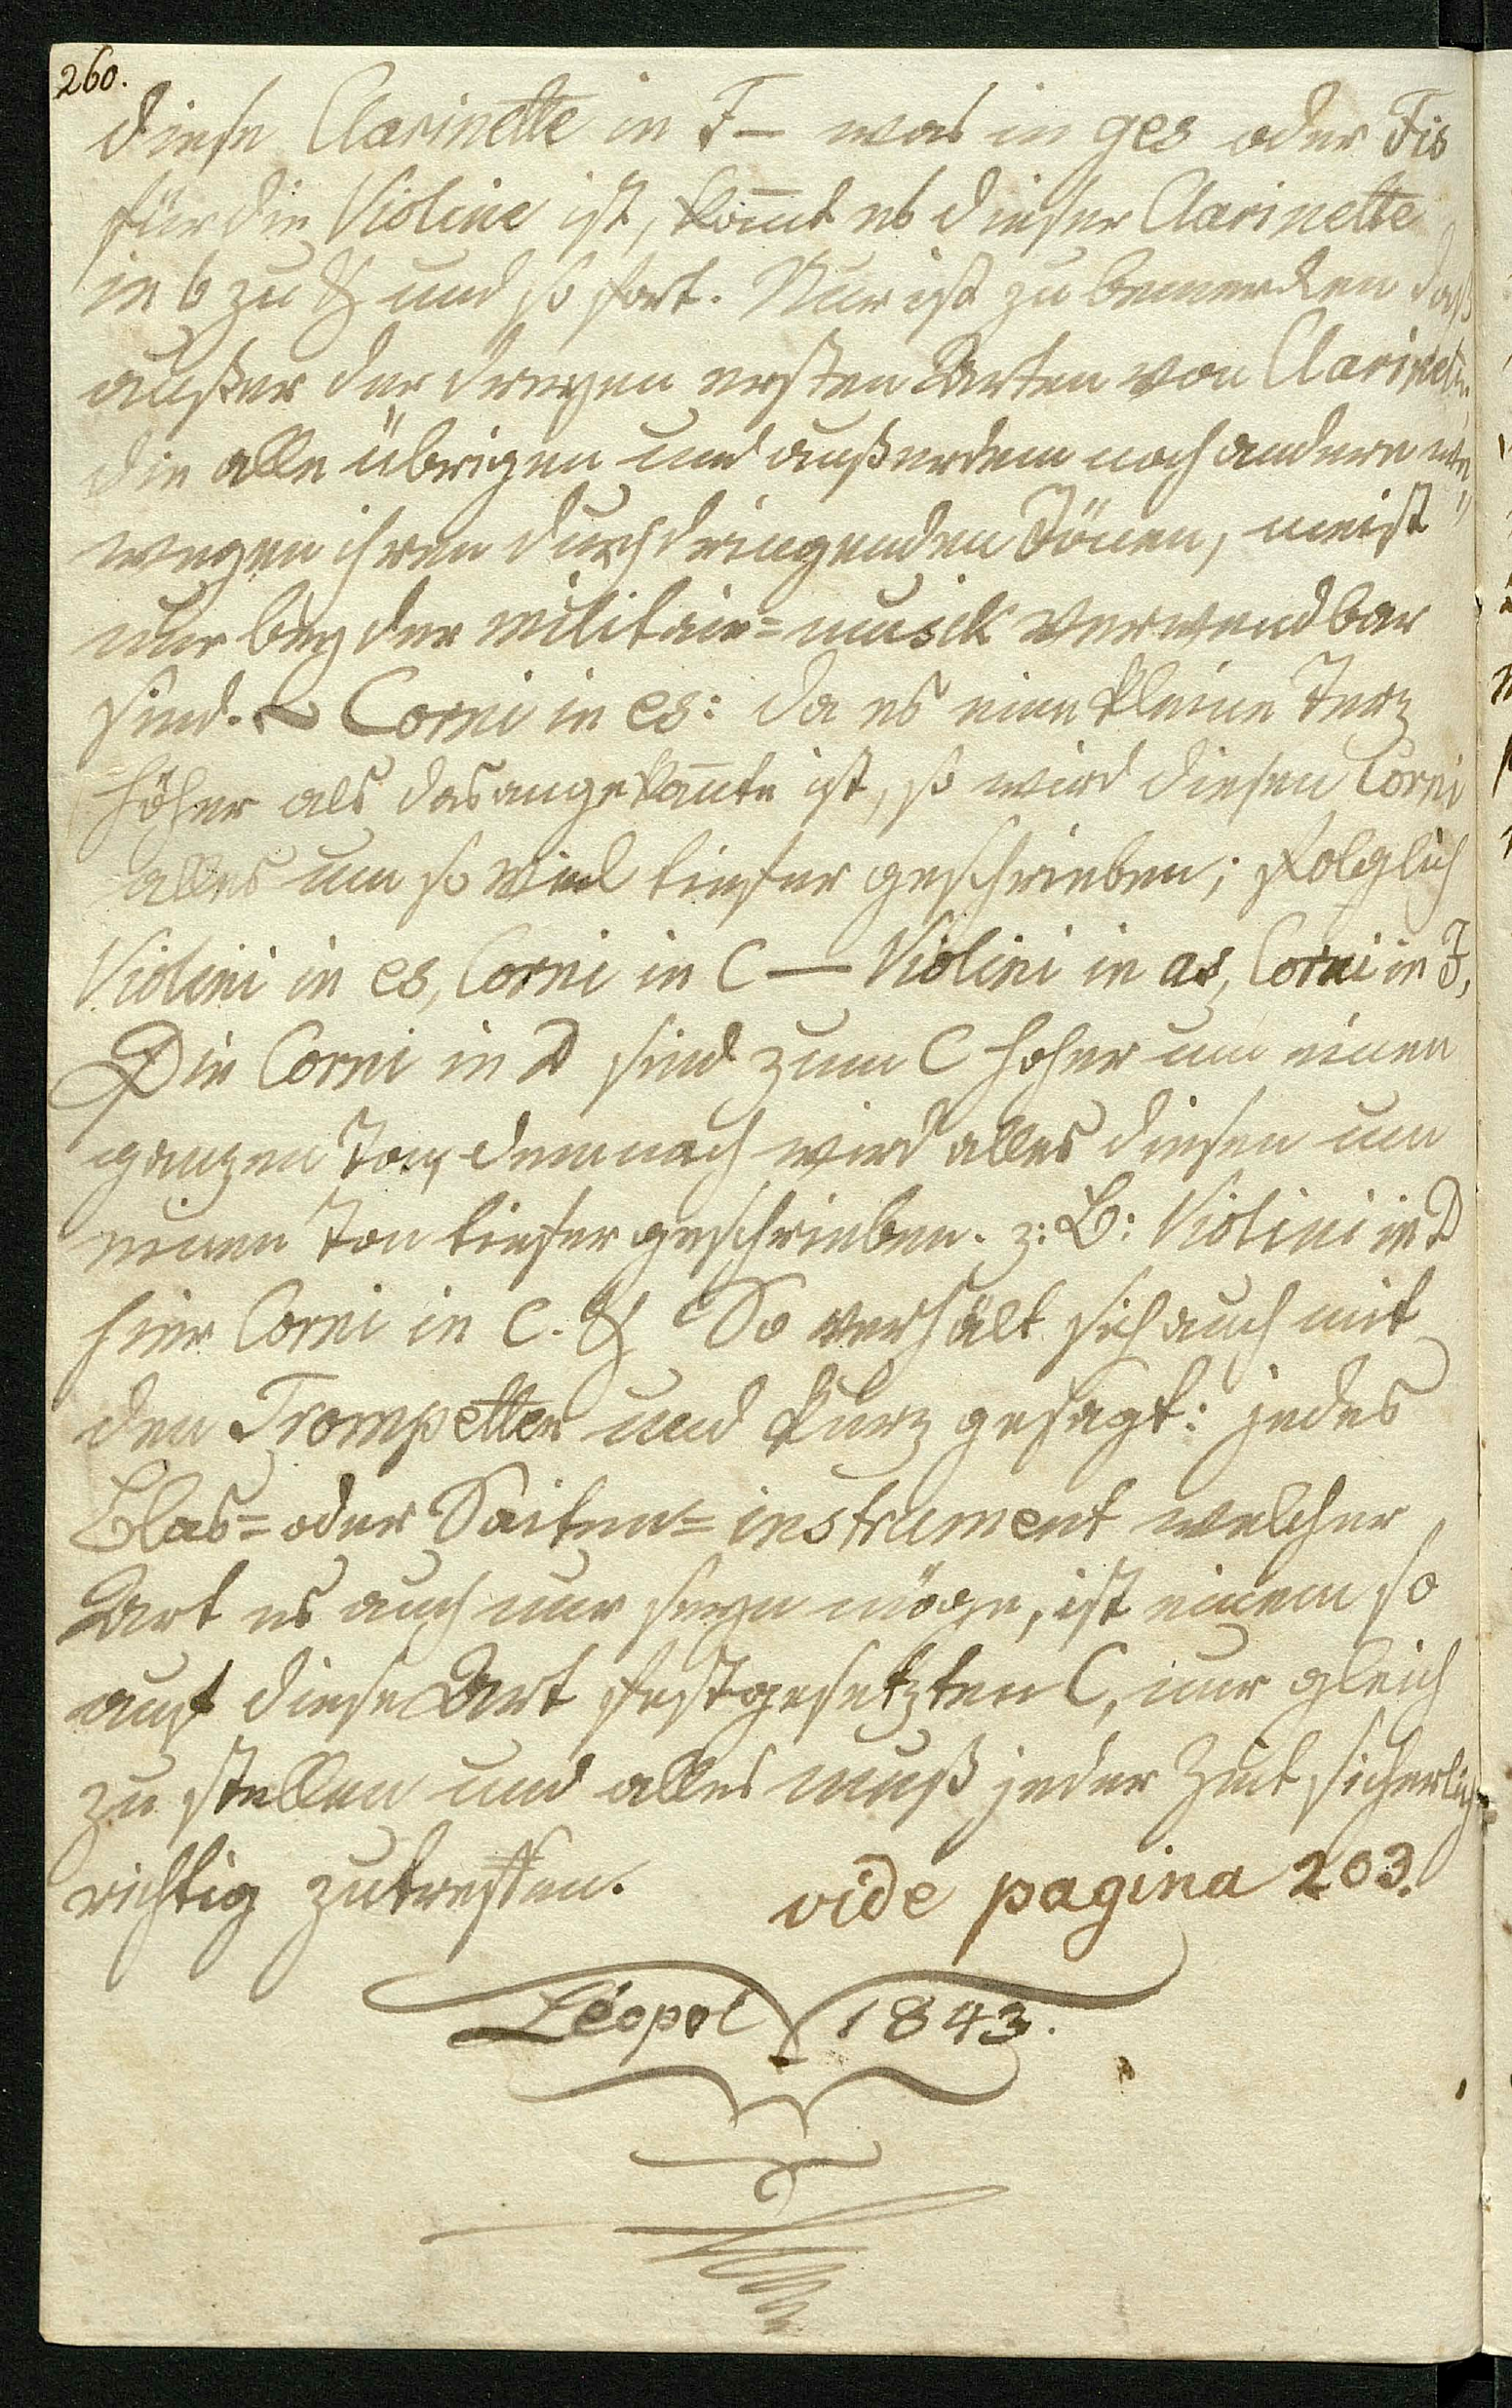 260.
diese Clarinette in F– was in ges oder Fis
für die Violine ist, kom̄t es dieser Clarinette
in b zu & und so fort. Nur ist zu bemerken daß
außer der dreyen ersten Arten von Clarinett.
die alle übrigen und außerdem noch andere
wegen ihren durchdringenden Tönen, meist
nur bey der militair=musick verwendbar
sind. ~ Corni in es: da es eine kleine Terz
höher als das angekan̄te ist, so wird diesen Corni
alles um so viel tiefer geschrieben; folglich
Violini in es, Corni in C — Violini in as, Corni in F,
Die Corni in D sind zum C hoher um einen
ganzen Ton, demnach wird alles diesen um
einen Ton tiefer geschrieben. z: B: Violini in D
hier Corni in C. & So verhält sich auch mit
den Trompetten und kurz gesagt: jedes
Blas= oder Saiten=instrument welcher
Art es auch nur seyn möge, ist einem so
auf diese Art festgesetzten C, nur gleich
zu stellen und alles muß jeder Zeit sicherlich
richtig zutreffen. vide pagina 203.
Léopol 1843.